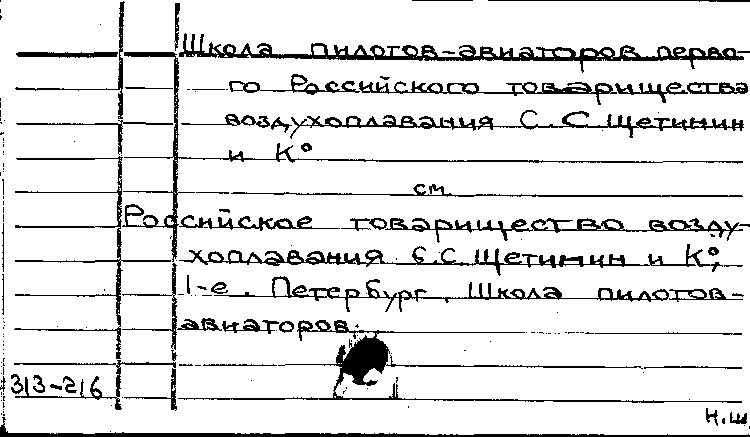 Школа пилотов-авиаторов перво-
го Российского товарищества
воздухоплавания С.С Щетинин
и К°
см.
Российское товарищество возду-
хоплавания С.С. Щетинин и К°,
1-е. Петербург. Школа пилотов-
авиаторов.
313-216
Н.Ш